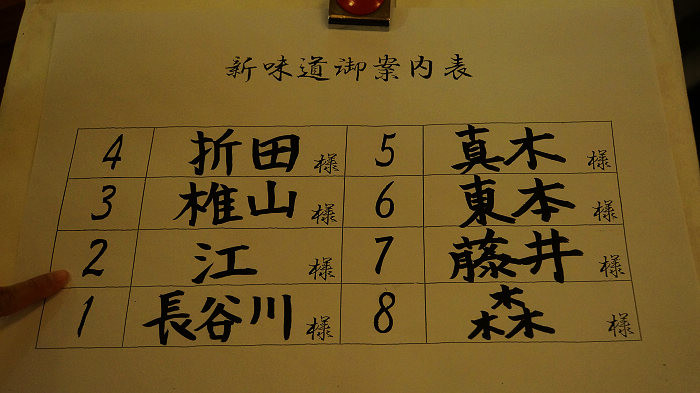 新味道御案内表
4 折田 様 5 真木 様
3 椎山 様 6 東本 様
2 江 様 7 藤井 様
1 長谷川 様 8 森 様